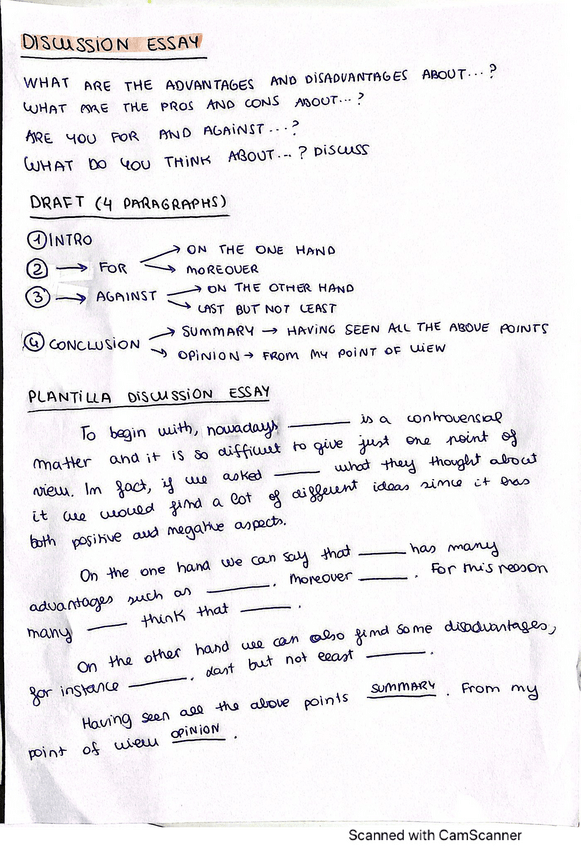 DISCUSSION ESSAY
WHAT ARE THE ADVANTAGES AND DISADVANTAGES ABOUT...?
WHAT ARE THE PROS AND CONS ABOUT...?
ARE YOU FOR AND AGAINST...?
WHAT DO YOU THINK ABOUT...? DISCUSS
DRAFT (4 PARAGRAPHS)
① INTRO
② → FOR → ON THE ONE HAND
→ MOREOVER
③ → AGAINST → ON THE OTHER HAND
→ LAST BUT NOT LEAST
④ CONCLUSION → SUMMARY → HAVING SEEN ALL THE ABOVE POINTS
→ OPINION → FROM MY POINT OF VIEW
PLANTILLA DISCUSSION ESSAY
To begin with, nowadays ______ is a controversial
matter and it is so difficult to give just one point of
view. In fact, if we asked ______ what they thought about
it we would find a lot of different ideas since it has
both positive and negative aspects.
On the one hand we can say that ______ has many
advantages such as ______. Moreover ______. For this reason
many ______ think that ______.
On the other hand we can also find some disadvantages,
for instance ______. Last but not least ______.
Having seen all the above points SUMMARY. From my
point of view OPINION.
Scanned with CamScanner